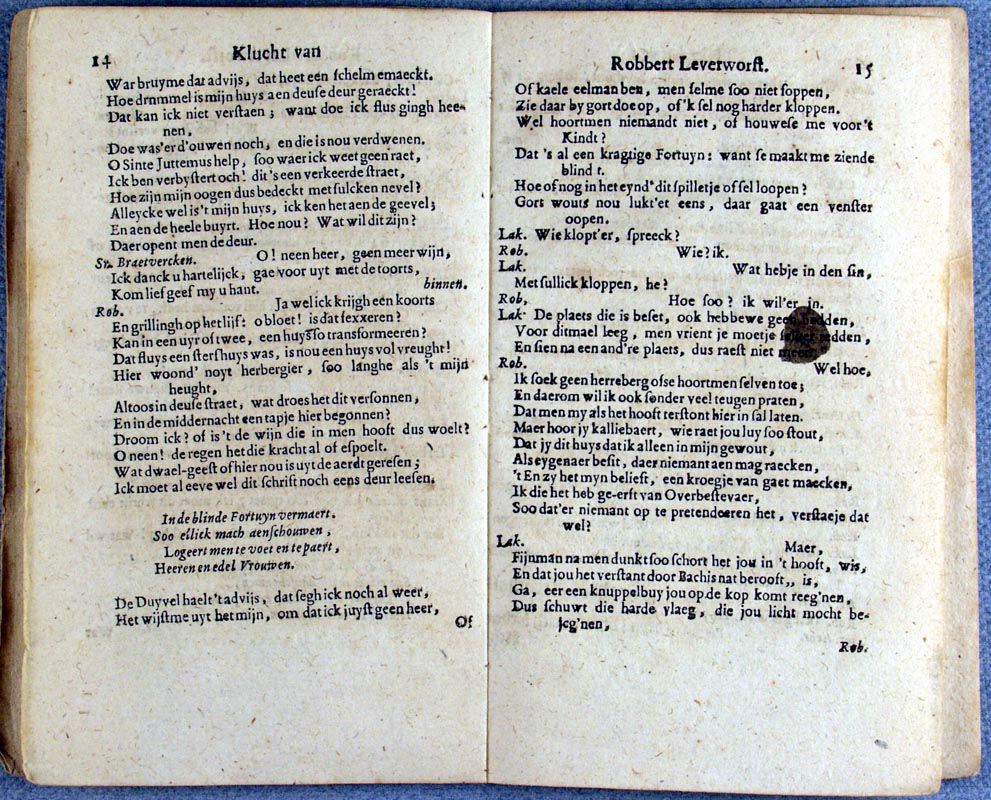 14
Klucht van
War bruyme dat advijs, dat heet een schelm emaeckt.
Hoe drommel is mijn huys aen deuse deur geraeckt!
Dat kan ick niet verstaen; want doe ick flus gingh hee-
nen,
Doe was'er d'ouwen noch, en die is nou verdwenen.
O Sinte Juttemus help, soo waer ick weet geen raet,
Ick ben verbystert och! dit's een verkeerde straet,
Hoe zijn mijn oogen dus bedeckt met sulcken nevel?
Alleycke wel is't mijn huys, ick ken het aen de geevel;
En aen de heele buyrt. Hoe nou? Wat wil dit zijn?
Daer opent men de deur.
Sr. Braetvercken. O! neen heer, geen meer wijn,
Ick danck u hartelijck, gae voor uyt met de toorts,
Kom lief geef my u hant. binnen.
Rob. Ja wel ick krijgh een koorts
En grillingh op het lijf: o bloet! is dat sexxeren?
Kan in een uyr of twee, een huys soo transformeeren?
Dat fluys een sterfhuys was, is nou een huys vol vreught!
Hier woond' noyt herbergier, soo langhe als 't mijn
heught,
Altoos in deuse straet, wat droes het dit versonnen,
En in de middernacht een tapje hier begonnen?
Droom ick? of is't de wijn die in men hooft dus woelt?
O neen! de regen het die kracht al of espoelt.
Wat dwael-geest of hier nou is uyt de aerdt geresen;
Ick moet al eeve wel dit schrift noch eens deur leesen.
In de blinde Fortuyn vermaert.
Soo elliek mach aenschouwen,
Logeert men te voet en te paert,
Heeren en edel Vrouwen.
De Duyvel haelt 't advijs, dat segh ick noch al weer,
Het wijst me uyt het mijn, om dat ick juyst geen heer,
Of
Robbert Leverworst.
15
Of kaele eelman ben, men selme soo niet foppen,
Zie daar by gort doe op, of 'k sel nog harder kloppen.
Wel hoort men niemandt niet, of houwese me voor't
Kindt?
Dat 's al een kragtige Fortuyn: want se maakt me ziende
blind t.
Hoe of nog in het eynd' dit spilletje of sel loopen?
Gort wouts nou lukt'et eens, daar gaat een venster
oopen.
Lak. Wie klopt'er, spreeck?
Rob. Wie? ik.
Lak. Wat hebje in den sin,
Met sullick kloppen, he?
Rob, Hoe soo? ik wil'er in.
Lak. De plaets die is beset, ook hebbewe geen bedden,
Voor ditmael leeg, men vrient je moetje redden,
En sien na een and're plaets, dus raest niet meer.
Rob. Wel hoe,
Ik soek geen herreberg ofse hoort men selven toe;
En daerom wil ik ook sonder veel teugen praten,
Dat men my als het hooft terstont hier in sal laten.
Maer hoor jy kalliebaert, wie raet jou luy soo stout,
Dat jy dit huys dat ik alleen in mijn gewout,
Als eygenaer besit, daer niemant aen mag raecken,
't En zy het myn belieft, een kroegje van gaet maecken,
Ik die het heb ge-erft van Overbestevaer,
Soo dat'er niemant op te pretendeeren het, verstaeje dat
wel?
Lak. Maer,
Fijnman na men dunkt soo schort het jou in 't hooft, wis,
En dat jou het verstant door Bachis nat berooft,, is,
Ga, eer een knuppelbuy jou op de kop komt reeg'nen,
Dus schuwt die harde vlaeg, die jou licht mocht be-
jeg'nen,
Rob.